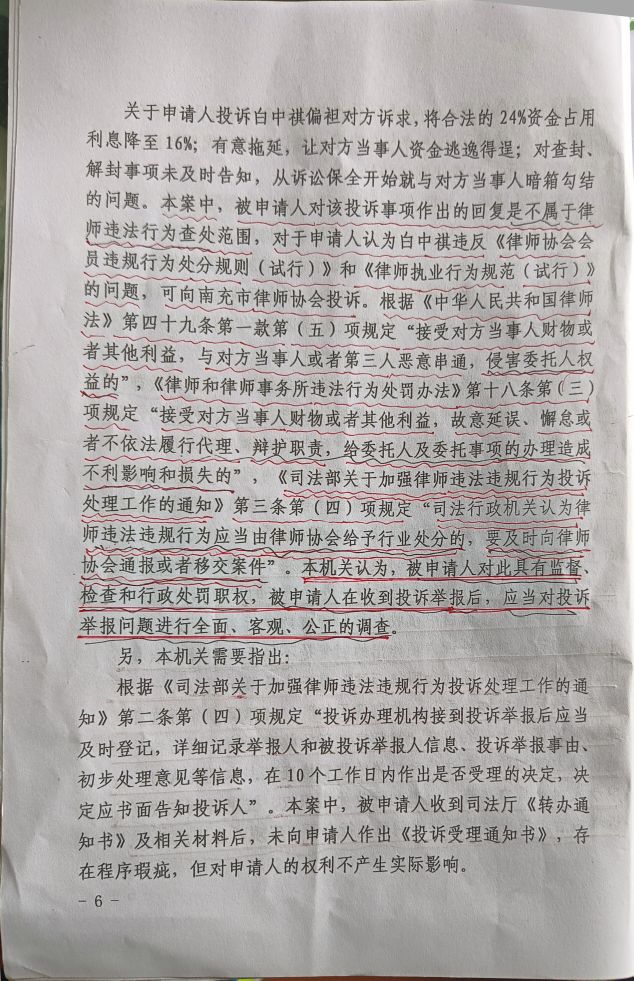 关于申请人投诉白中祺偏袒对方诉求,将合法的24%资金占用
利息降至16%;有意拖延,让对方当事人资金逃逸得逞;对查封、
解封事项未及时告知,从诉讼保全开始就与对方当事人暗箱勾结
的问题。本案中,被申请人对该投诉事项作出的回复是不属于律
师违法行为查处范围,对于申请人认为白中祺违反《律师协会会
员违规行为处分规则(试行)》和《律师执业行为规范(试行)》
的问题,可向南充市律师协会投诉。根据《中华人民共和国律师
法》第四十九条第一款第(五)项规定“接受对方当事人财物或
者其他利益,与对方当事人或者第三人恶意串通,侵害委托人权
益的”,《律师和律师事务所违法行为处罚办法》第十八条第(三)
项规定“接受对方当事人财物或者其他利益,故意延误、懈怠或
者不依法履行代理、辩护职责,给委托人及委托事项的办理造成
不利影响和损失的”,《司法部关于加强律师违法违规行为投诉
处理工作的通知》第三条第(四)项规定“司法行政机关认为律
师违法违规行为应当由律师协会给予行业处分的,要及时向律师
协会通报或者移交案件”。本机关认为,被申请人对此具有监督、
检查和行政处罚职权,被申请人在收到投诉举报后,应当对投诉
举报问题进行全面、客观、公正的调查。
另,本机关需要指出:
根据《司法部关于加强律师违法违规行为投诉处理工作的通
知》第二条第(四)项规定“投诉办理机构接到投诉举报后应当
及时登记,详细记录举报人和被投诉举报人信息、投诉举报事由、
初步处理意见等信息,在10个工作日内作出是否受理的决定,决
定应书面告知投诉人”。本案中,被申请人收到司法厅《转办通
知书》及相关材料后,未向申请人作出《投诉受理通知书》,存
在程序瑕疵,但对申请人的权利不产生实际影响。
- 6 -